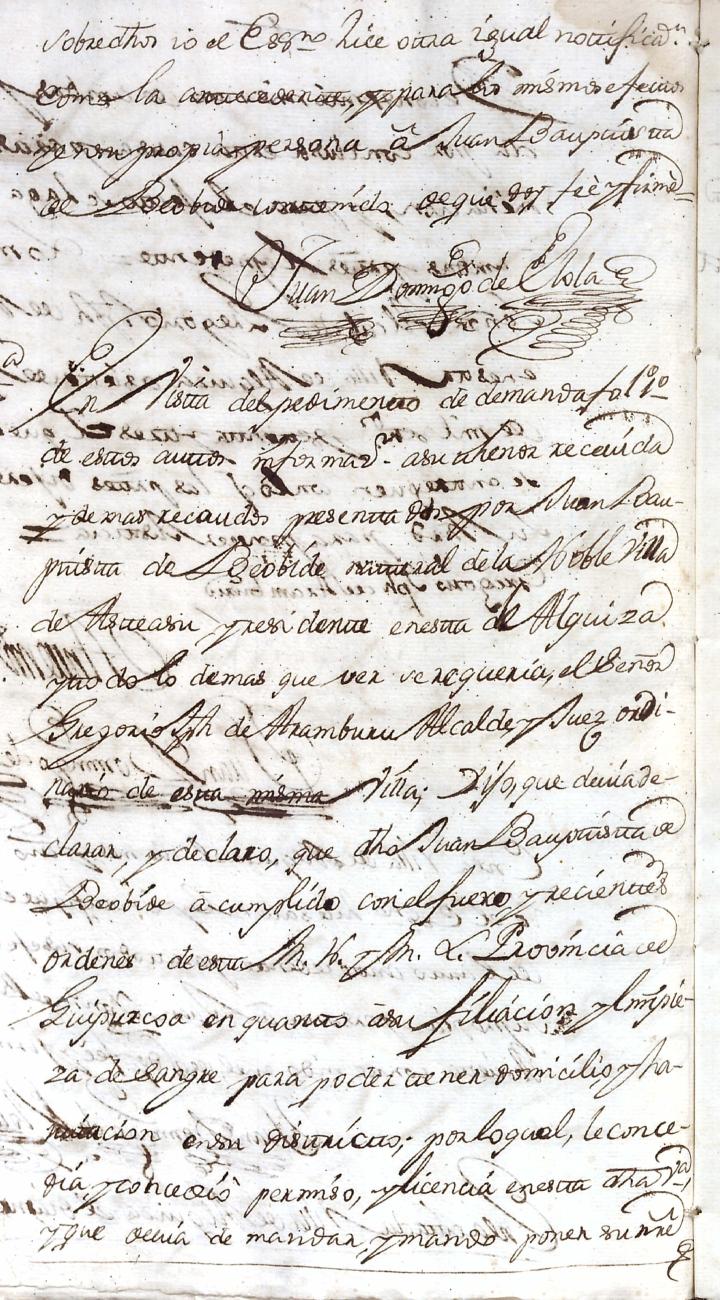 sobredhos io el Essno hice otra igual notificaon
como la antecedente, y para los mismos efectos
y en su propia persona â Juan Bauptistta
de Beobide contenido de que doy feè y firmè
Juan Domingo de Elola
En Vistta del pedimento de demanda fol 1º
de estos auttos informaon asu thenor receuida
y demas recaudos presenttados por Juan Bau-
ptistta de Beobide natural de la Noble Villa
de Astteasu y residentte enestta de Alquiza
y todo lo demas que ver se requeria, el Señor
Gregorio Jph de Aramburu Alcalde y Juez ordi-
nario de estta misma Villa; Dijo, que deuia de-
clarar, y declaro, que dho Juan Bauptistta de
Beobide â cumplido con el fuero, y recienttes
ordenes de estta M. N. y M. L. Provincia de
Guipuzcoa en quantto âsu filiacion y limpie-
za de sangre para poder ttener domicilio, y ha-
uitacion en su disttrictto; por lo qual, le conce-
dia y concediô permiso, y licencia enestta dha Vª,
y que deuia de mandar, y mando poner su nre